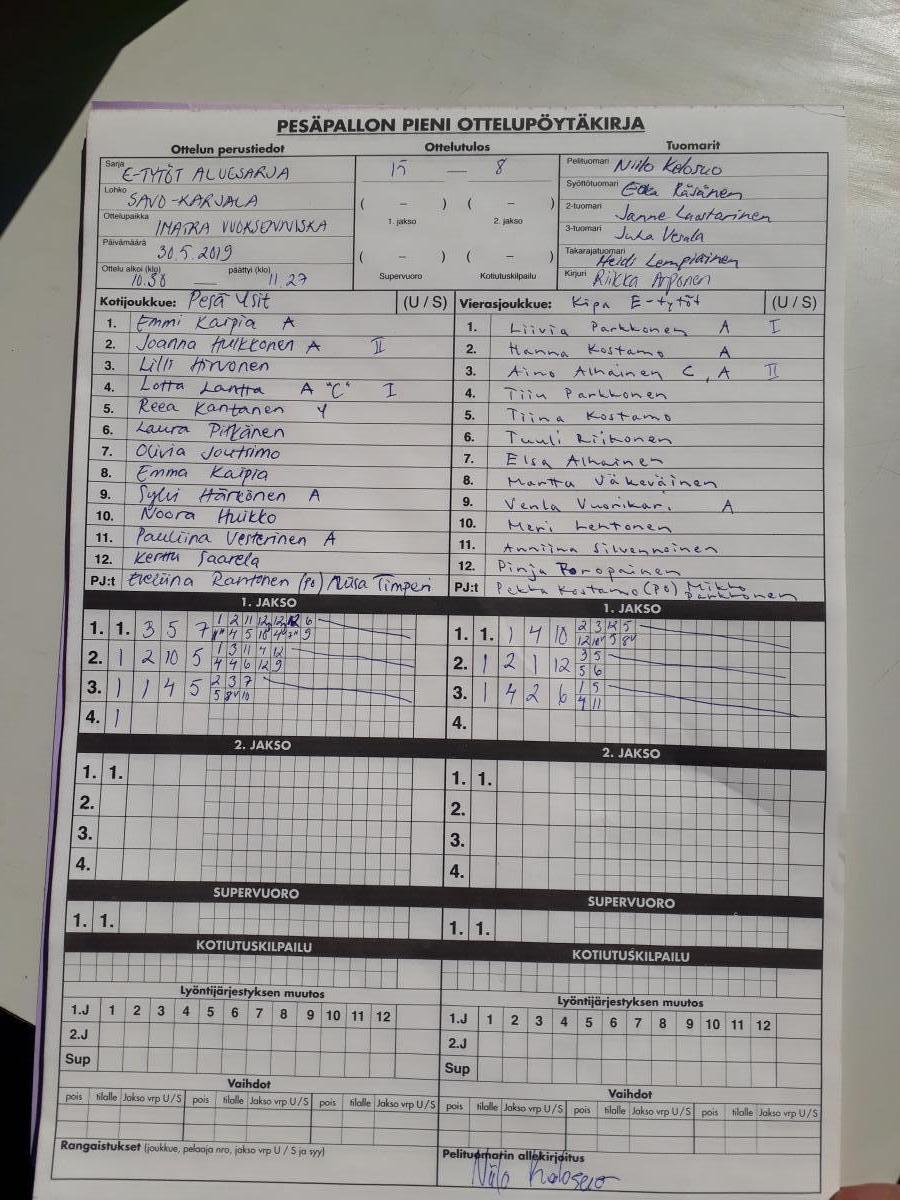 PESÄPALLON PIENI OTTELUPÖYTÄKIRJA
Ottelun perustiedot Ottelutulos Tuomarit
Sarja E-TYTÖT ALUESARJA
Lohko SAVO-KARJALA
Ottelupaikka IMATRA VUOKSENNISKA
Päivämäärä 30.5.2019
Ottelu alkoi (klo) 10.30 — päättyi (klo) 11.27
15 — 8
( – ) ( – )
1. jakso 2. jakso
( – ) ( – )
Supervuoro Kotiutuskilpailu
Pelituomari Niilo Kolosuo
Syöttötuomari Räsänen
2-tuomari Janne Laastarinen
3-tuomari Juha Vesala
Takarajatuomari Heidi Lempiäinen
Kirjuri Riikka Arponen
Kotijoukkue: Pesä Ysit (U / S)
1. Emmi Karpia A
2. Joanna Hulkkonen A II
3. Lilli Hirvonen
4. Lotta Lantta A "C" I
5. Reea Kantanen Y
6. Laura Pitkänen
7. Olivia Joutsimo
8. Emma Karpia
9. Sylvi Härkönen A
10. Noora Huikko
11. Pauliina Vesterinen A
12. Kerttu Saarela
PJ:t Eveliina Rantonen (PO) Timperi
Vierasjoukkue: Kipa E-tytöt (U / S)
1. Liivia Parkkonen A I
2. Hanna Kostamo A
3. Aino Alhainen C, A II
4. Tiiu Parkkonen
5. Tiina Kostamo
6. Tuuli Riikonen
7. Elsa Alhainen
8. Martta Väkeväinen
9. Venla Vuorikari A
10. Meri Lehtonen
11. Anniina Silvennoinen
12. Pinja Toropainen
PJ:t Pekka Kostamo (PO) Mikko Parkkonen
1. JAKSO
1. 1. 3 5 7
2. 1 2 10 5 1 3 11 4 12
4 4 6 12 9
3. 1 1 4 5 2 3 7
5 8V 10
4. 1
1. JAKSO
1. 1. 1 4 10 2 3 12 5
12 10V 5 8V
2. 1 2 1 12 3 5
5 6
3. 1 4 2 6 1 5
4 11
4.
2. JAKSO
1. 1.
2.
3.
4.
2. JAKSO
1. 1.
2.
3.
4.
SUPERVUORO
1. 1.
SUPERVUORO
1. 1.
KOTIUTUSKILPAILU
KOTIUTUSKILPAILU
Lyöntijärjestyksen muutos
1.J 1 2 3 4 5 6 7 8 9 10 11 12
2.J
Sup
Lyöntijärjestyksen muutos
1.J 1 2 3 4 5 6 7 8 9 10 11 12
2.J
Sup
Vaihdot
pois tilalle Jakso vrp U / S pois tilalle Jakso vrp U / S pois tilalle Jakso vrp U / S
Vaihdot
pois tilalle Jakso vrp U / S pois tilalle Jakso vrp U / S pois tilalle Jakso vrp U / S
Rangaistukset (joukkue, pelaaja nro, jakso vrp U / S ja syy)
Pelituomarin allekirjoitus
Niilo Kolosuo